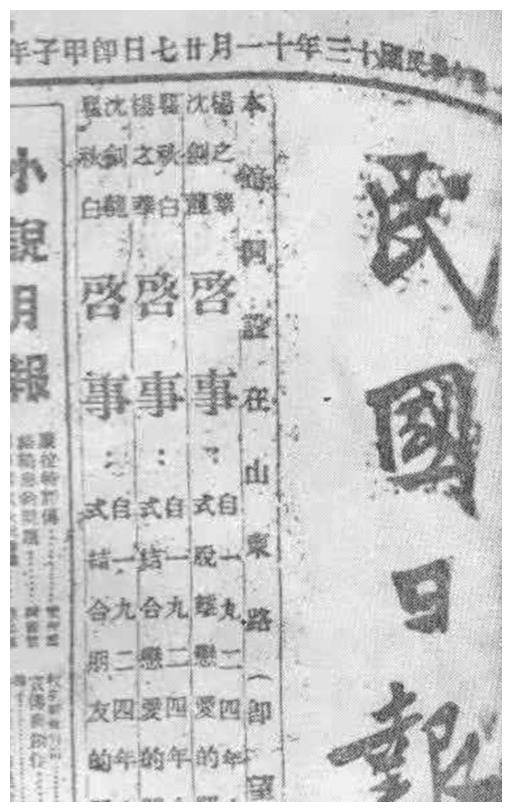 中華民國十三年十一月廿七日即甲子年
民國日報
本館開設在山東路(即望
楊之華
沈劍龍
啓事:
自一九二四年
式脫離戀愛的
瞿秋白
楊之華
啓事:
自一九二四年
式結合戀愛的
沈劍龍
瞿秋白
啓事:
自一九二四年
式結合朋友的
小說月報